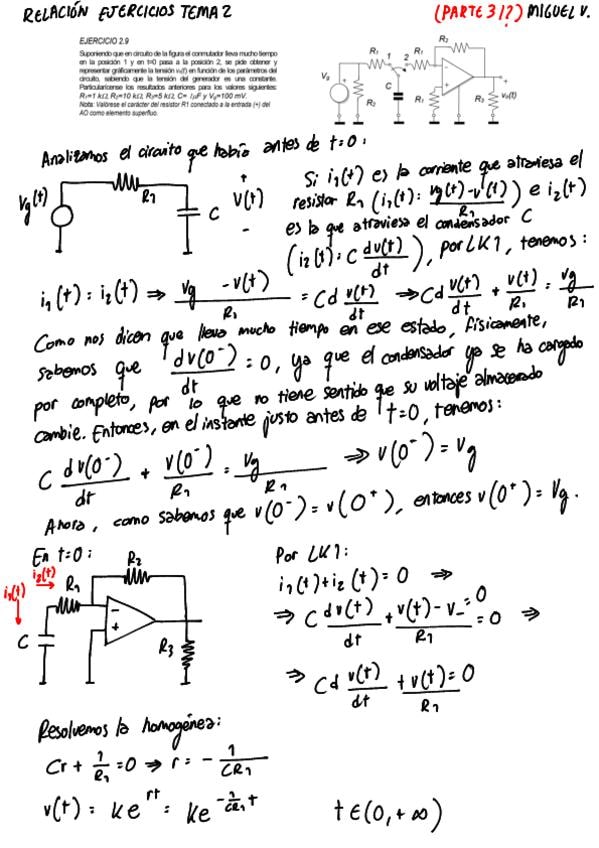 RELACIÓN EJERCICIOS TEMA 2 (PARTE 3/?) MIGUEL V.
EJERCICIO 2.9
Suponiendo que en circuito de la figura el conmutador lleva mucho tiempo
en la posición 1 y en t=0 pasa a la posición 2, se pide obtener y
representar gráficamente la tensión v₀(t) en función de los parámetros del
circuito, sabiendo que la tensión del generador es una constante.
Particularícense los resultados anteriores para los valores siguientes:
R₁=1 kΩ, R₂=10 kΩ, R₃=5 kΩ, C= 1μF y Vg=100 mV.
Nota: Valórese el carácter del resistor R1 conectado a la entrada (+) del
AO como elemento superfluo.
Vg R₁ 1 2 R₁ R₂
R₂ C R₁ R₃ v₀(t)
Analizamos el circuito que había antes de t=0:
Vg(t) R₁ C + V(t) -
Si i₁(t) es la corriente que atraviesa el
resistor R₁ (i₁(t): vg(t)-v(t)/R₁) e i₂(t)
es la que atraviesa el condensador C
(i₂(t): C dv(t)/dt), por LK1, tenemos:
i₁(t) = i₂(t) ⇒ Vg - v(t)/R₁ = C d v(t)/dt ⇒ C d v(t)/dt + v(t)/R₁ = Vg/R₁
Como nos dicen que lleva mucho tiempo en ese estado, físicamente,
sabemos que dv(0⁻)/dt = 0, ya que el condensador ya se ha cargado
por completo, por lo que no tiene sentido que su voltaje almacenado
cambie. Entonces, en el instante justo antes de t=0, tenemos:
C dv(0⁻)/dt + v(0⁻)/R₁ = Vg/R₁ ⇒ v(0⁻) = Vg
Ahora, como sabemos que v(0⁻) = v(0⁺), entonces v(0⁺) = Vg.
En t=0:
i₁(t) i₂(t) R₁ R₂ C - + R₃
Por LK1:
i₁(t)+i₂(t) = 0 ⇒
⇒ C dv(t)/dt + v(t) - V₋=0/R₁ = 0 ⇒
⇒ C d v(t)/dt + v(t)/R₁ = 0
Resolvemos la homogénea:
Cr + 1/R₁ = 0 ⇒ r = - 1/CR₁
v(t) = Ke^rt = Ke^-1/CR₁ t t∈(0,+∞)